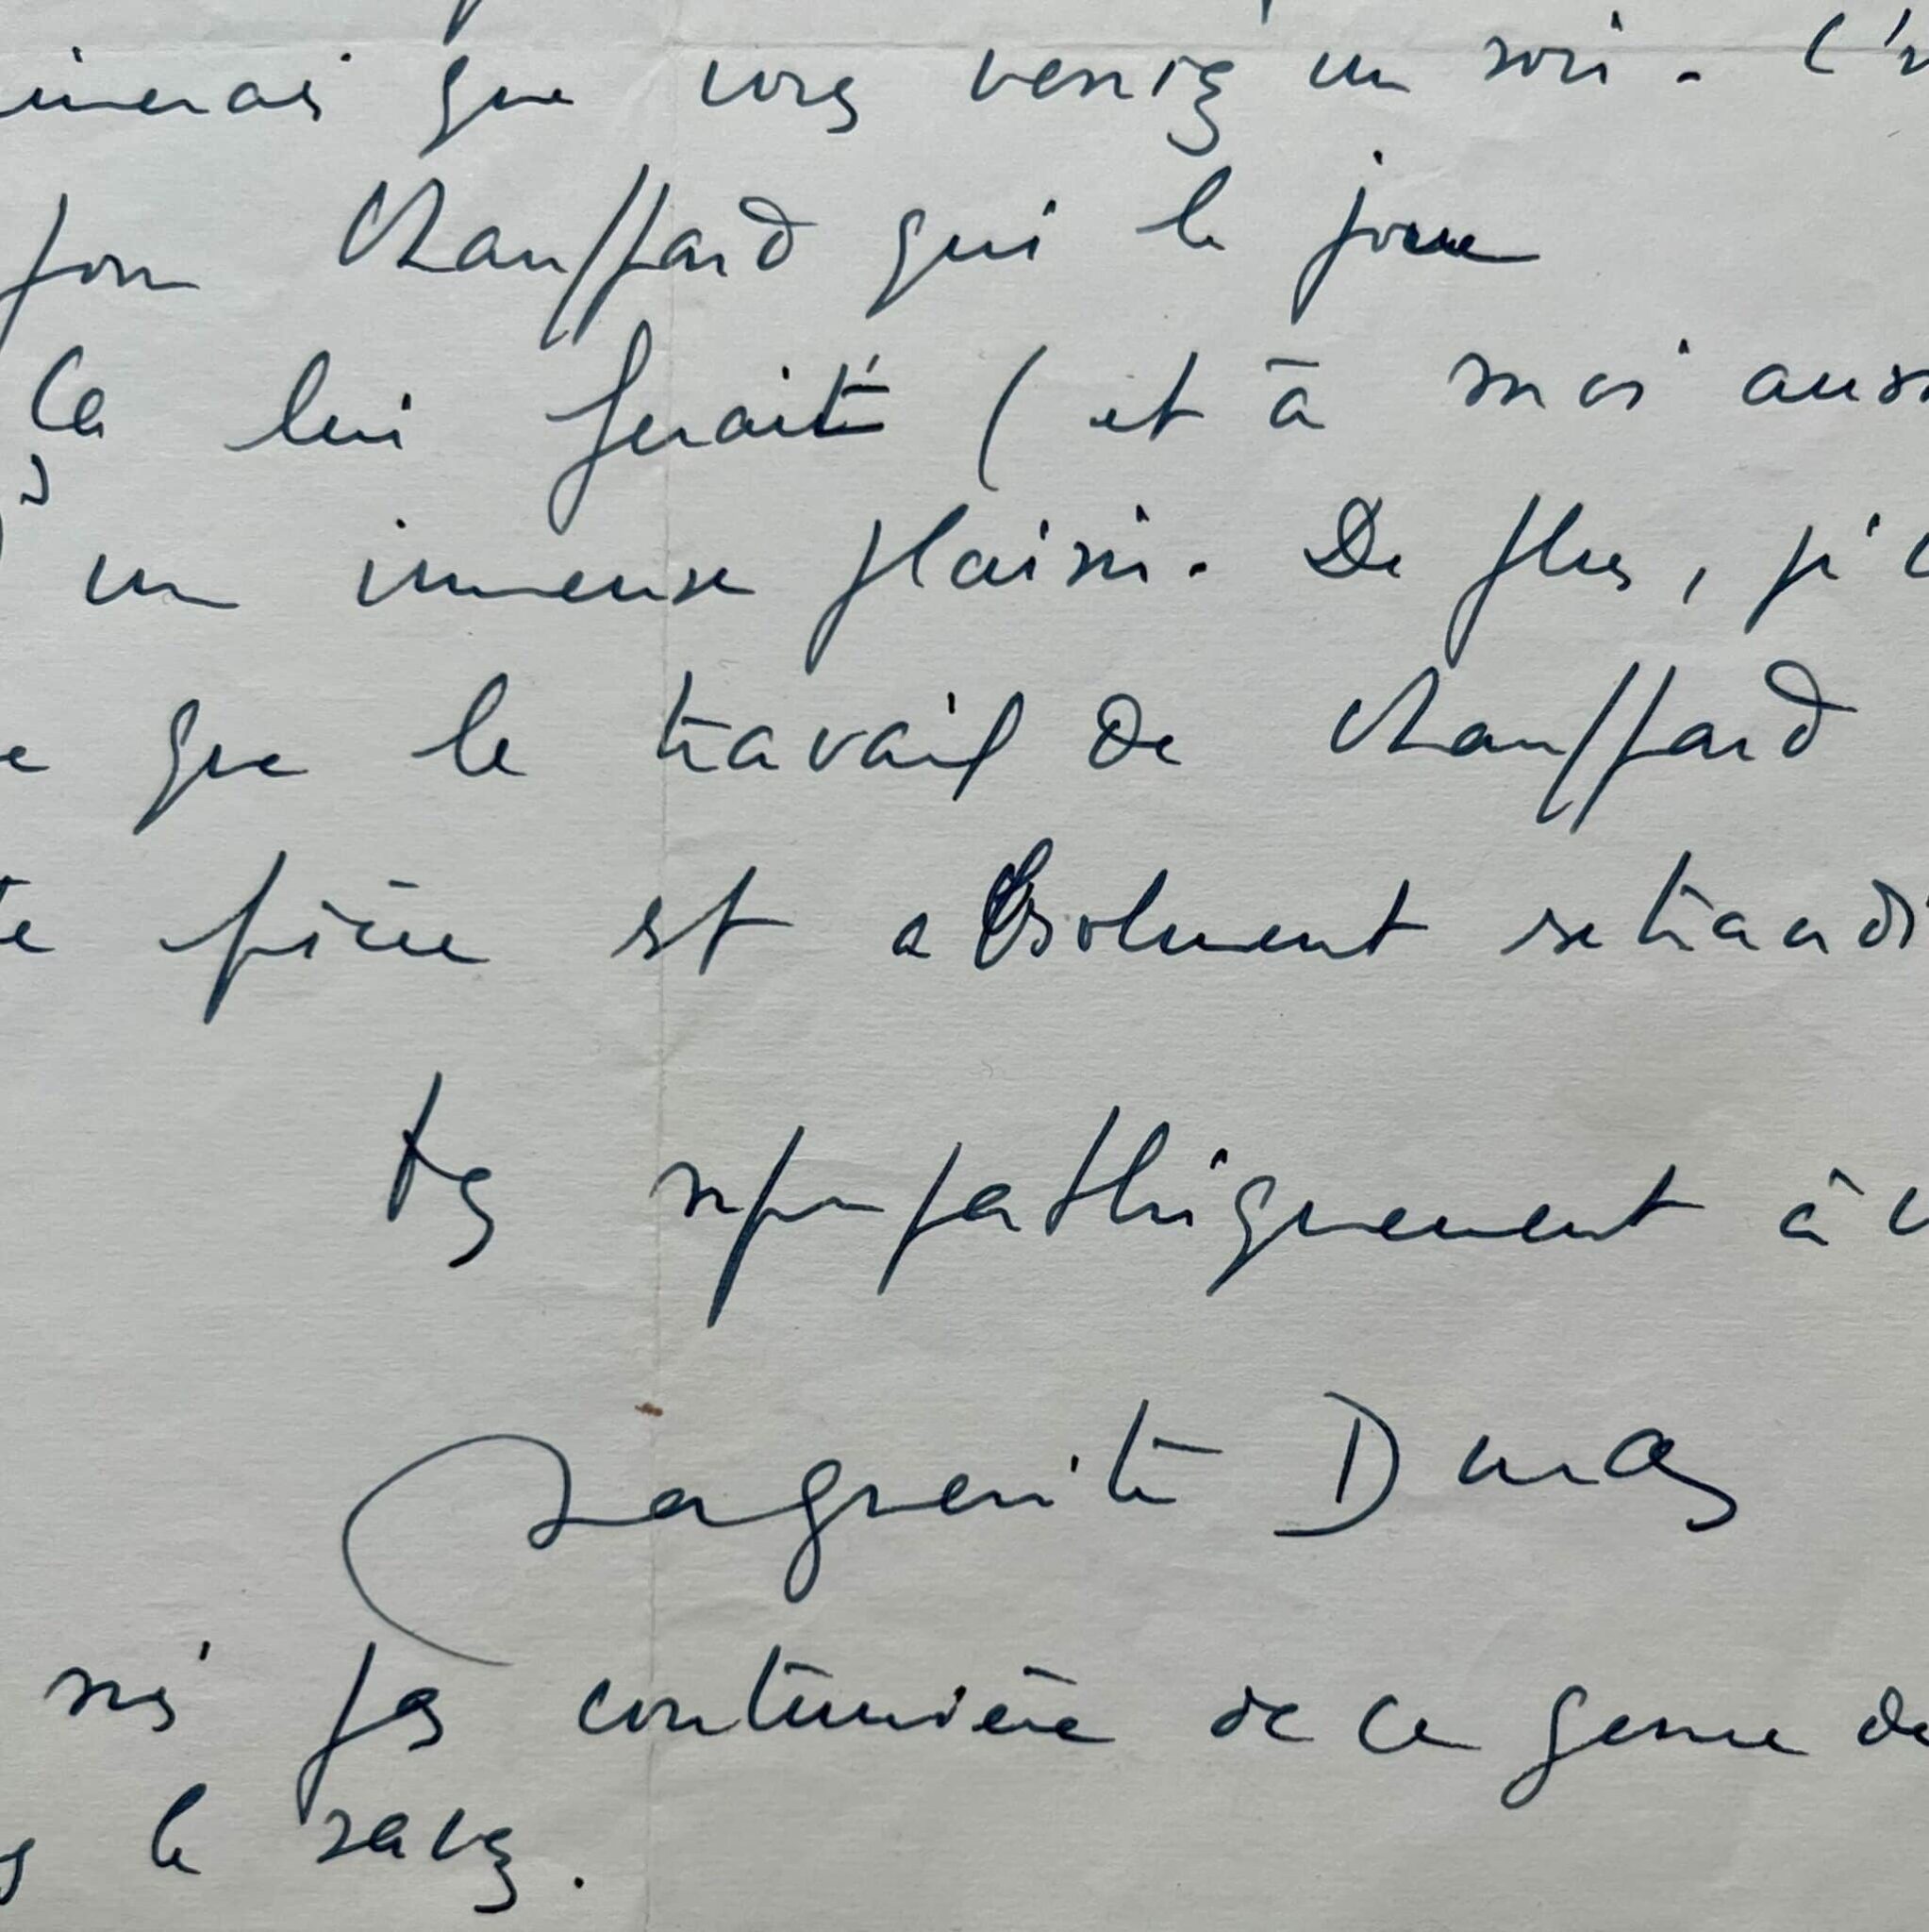 imerais que vous veniez un soir. C'
pour Chauffard qui le joue
Ça lui ferait (et à moi auss
) un immense plaisir. De plus, j'
e que le travail de Chauffard
te pièce est absolument extraordi
très sympathiquement à v
Marguerite Duras
suis pas coutumière de ce genre de
s le savez.